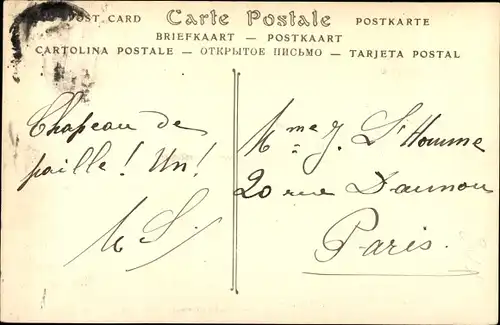 POST CARD Carte Postale POSTKARTE
BRIEFKAART — POSTKAART
CARTOLINA POSTALE — ОТКРЫТОЕ ПИСЬМО — TARJETA POSTAL
Chapeau de
paille ! Un !
Mme J. L'Homme
20 rue Daunou
Paris.